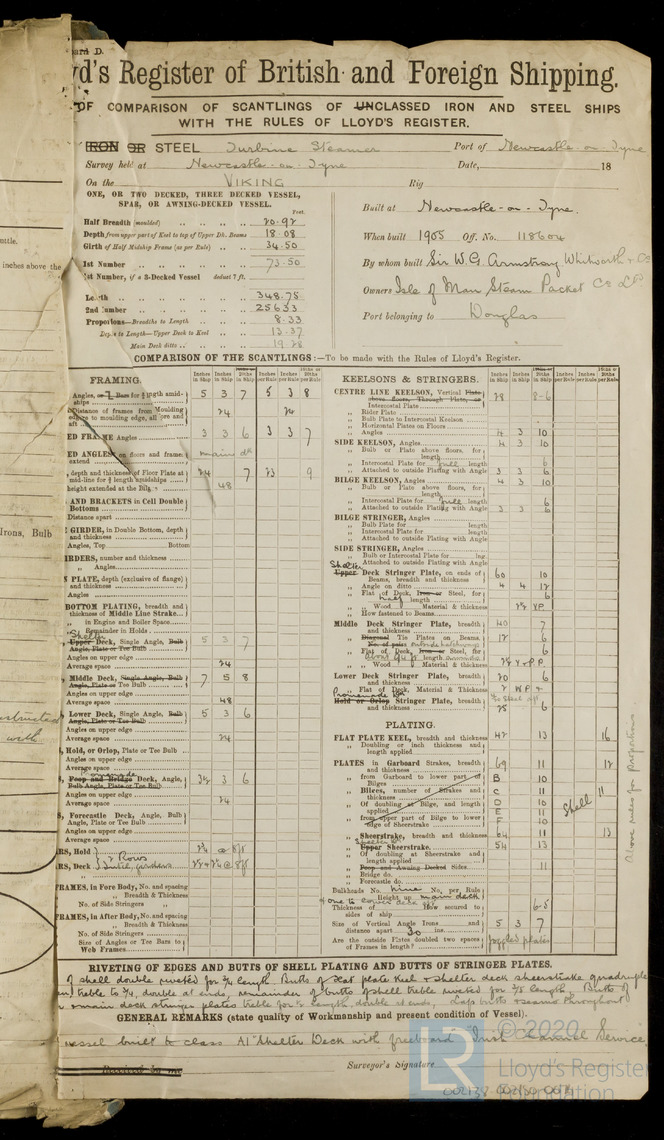 yd's Register of British and Foreign Shipping.
OF COMPARISON OF SCANTLINGS OF UNCLASSED IRON AND STEEL SHIPS
WITH THE RULES OF LLOYD'S REGISTER.
IRON OR STEEL Turbine Steamer Port of Newcastle-on-Tyne
Survey held at Newcastle-on-Tyne Date, 18
On the VIKING Rig
ONE, OR TWO DECKED, THREE DECKED VESSEL,
SPAR, OR AWNING-DECKED VESSEL.
Feet.
Half Breadth (moulded) 20.92
Depth from upper part of Keel to top of Upper Dk. Beams 18.08
Girth of Half Midship Frame (as per Rule) 34.50
1st Number 73.50
1st Number, if a 3-Decked Vessel deduct 7 ft.
Length 348.75
2nd Number 25633
Proportions—Breadths to Length 8.33
Depths to Length—Upper Deck to Keel 13.37
Main Deck ditto 19.28
Built at Newcastle-on-Tyne.
When built 1905 Off. No. 118604
By whom built Sir W.G. Armstrong Whitworth & Co
Owners Isle of Man Steam Packet Co Ld
Port belonging to Douglas
COMPARISON OF THE SCANTLINGS:—To be made with the Rules of Lloyd's Register.
FRAMING.
Angles, or Bars for ½ length amidships 5 3 7 5 3 8
Distance of frames from Moulding edge to moulding edge, all fore and aft 24 24
ED FRAME Angles 3 3 6 3 3 7
ED ANGLES on floors and frames extend main dk
depth and thickness of Floor Plate at mid-line for ½ length amidships 24 7 23 9
height extended at the Bilges 48
AND BRACKETS in Cell Double Bottoms
Distance apart
GIRDER, in Double Bottom, depth and thickness
Angles, Top Bottom
IRDERS, number and thickness
Angles
N PLATE, depth (exclusive of flange) and thickness
Angles
BOTTOM PLATING, breadth and thickness of Middle Line Strake
in Engine and Boiler Space
Remainder in Holds
Shelter
Upper Deck, Single Angle, Bulb Angle, Plate or Tee Bulb 5 3 7
Angles on upper edge
Average space 24
Middle Deck, Single Angle, Bulb Angle, Plate or Tee Bulb 7 5 8
Angles on upper edge
Average space 48
Lower Deck, Single Angle, Bulb Angle, Plate or Tee Bulb 5 3 6
Angles on upper edge
Average space 24
Hold, or Orlop, Plate or Tee Bulb
Angles on upper edge
Average space
Promenade
Poop and Bridge Deck, Angle, Bulb Angle, Plate or Tee Bulb 3½ 3 6
Angles on upper edge
Average space 24
Forecastle Deck, Angle, Bulb Angle, Plate or Tee Bulb
Angles on upper edge
Average space
RS, Hold
RS, Deck 2 Rows
FRAMES, in Fore Body, No. and spacing
Breadth & Thickness
No. of Side Stringers
FRAMES, in After Body, No. and spacing
Breadth & Thickness
No. of Side Stringers
Size of Angles or Tee Bars to Web Frames
KEELSONS & STRINGERS.
CENTRE LINE KEELSON, Vertical Plate above floors, Through Plate, or Intercostal Plate 28 8-6
Rider Plate
Bulb Plate to Intercostal Keelson
Horizontal Plates on Floors
Angles 4 3 10
SIDE KEELSON, Angles 4 3 10
Bulb or Plate above floors, for length
Intercostal Plate for full length 6
Attached to outside Plating with Angle 3 3 6
BILGE KEELSON, Angles 4 3 10
Bulb or Plate above floors, for length
Intercostal Plate for full length 6
Attached to outside Plating with Angle 3 3 6
BILGE STRINGER, Angles
Bulb Plate for length
Intercostal Plate for length
Attached to outside Plating with Angle
SIDE STRINGER, Angles
Bulb or Intercostal Plate for lng.
Attached to outside Plating with Angle
Shelter
Upper Deck Stringer Plate, on ends of Beams, breadth and thickness 60 10
Angle on ditto 4 4 12
Flat of Deck, Iron or Steel, for half length 6
Wood Material & thickness 2½ Y.P.
How fastened to Beams
Middle Deck Stringer Plate, breadth and thickness 40 7
Diagonal Tie Plates on Beams, No. of pairs outside hatchways 12 6
Flat of Deck, Iron or Steel, for length 6
Wood Material & thickness
Lower Deck Stringer Plate, breadth and thickness 20 6
Flat of Deck, Material & Thickness
Promenade Dk
Hold or Orlop Stringer Plate, breadth and thickness 25 6
PLATING.
FLAT PLATE KEEL, breadth and thickness 42 13 16
Doubling or inch thickness and length applied
PLATES in Garboard Strakes, breadth and thickness 69 11 12
from Garboard to lower part of Bilges B 10
Bilges, number of Strakes and thickness C 11
Of doubling at Bilge, and length applied D 10
from upper part of Bilge to lower edge of Sheerstrake E 10
F 10
Shell 11
Sheerstrake, breadth and thickness 64 11 13
Upper Sheerstrake 54 13
Of doubling at Sheerstrake and length applied
Poop and Awning Decked Sides 11
Bridge do.
Forecastle do.
Bulkheads No. nine No. per Rule
Height up main deck
Thickness of How secured to sides of ship 6-5
Size of Vertical Angle Irons and distance apart 30 ins. 5 3 7
Are the outside Plates doubled two spaces of Frames in length? Joggled plates
Above rules for Proportions
RIVETING OF EDGES AND BUTTS OF SHELL PLATING AND BUTTS OF STRINGER PLATES.
of shell double riveted for ¾ length Butts of flat plate keel & shelter deck sheerstrake quadruple
treble to ¾, double at ends, remainder of butts of shell treble riveted for ⅝ length, Butts of
main deck stringer plates treble for ½ length, double at ends. Lap butts & seams throughout
GENERAL REMARKS (state quality of Workmanship and present condition of Vessel).
vessel built to class A1 "Shelter Deck with freeboard" Irish Channel Service
Received by me
Surveyor's Signature
© 2020
LR
Lloyd's Register
Foundation
inches above the
Irons, Bulb
with